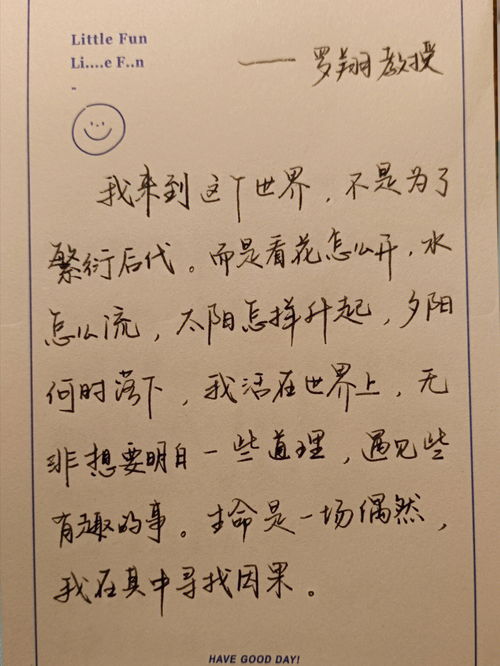 Little Fun
Li....e F..n
-
—— 罗翔教授
我来到这个世界，不是为了
繁衍后代。而是看花怎么开，水
怎么流，太阳怎样升起，夕阳
何时落下，我活在世界上，无
非想要明白一些道理，遇见些
有趣的事。生命是一场偶然，
我在其中寻找因果。
HAVE GOOD DAY!